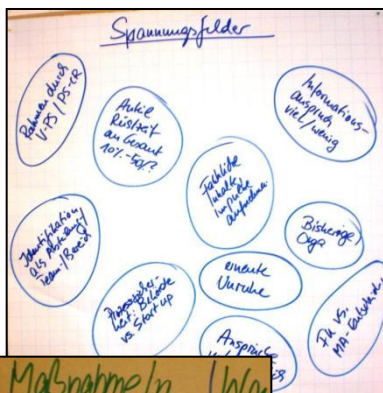 Spannungsfelder
Rahmen durch
V-PS / PS-ER
Anteil
Rüstzeit
an Gesamt
10% - 50%?
Informations-
anspruch
viel/wenig
Fachliche
Inhalte
Impulse
Identifikation
als Abteilung/
Team/Bereich
Bisherige
Orga
erneute
Unruhe
Behörde
vs. Start up
FK vs.
Ansprüche
Maßnahme/n